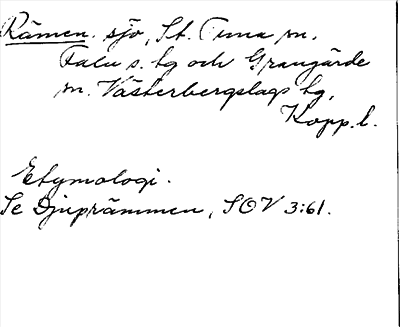 Rämen. sjö, St. Tuna sn.
Falu s. tg och Grangärde
sn. Västerbergslags tg,
Kopp. l.
Etymologi.
Se Djuprämmen, SOV 3:61.